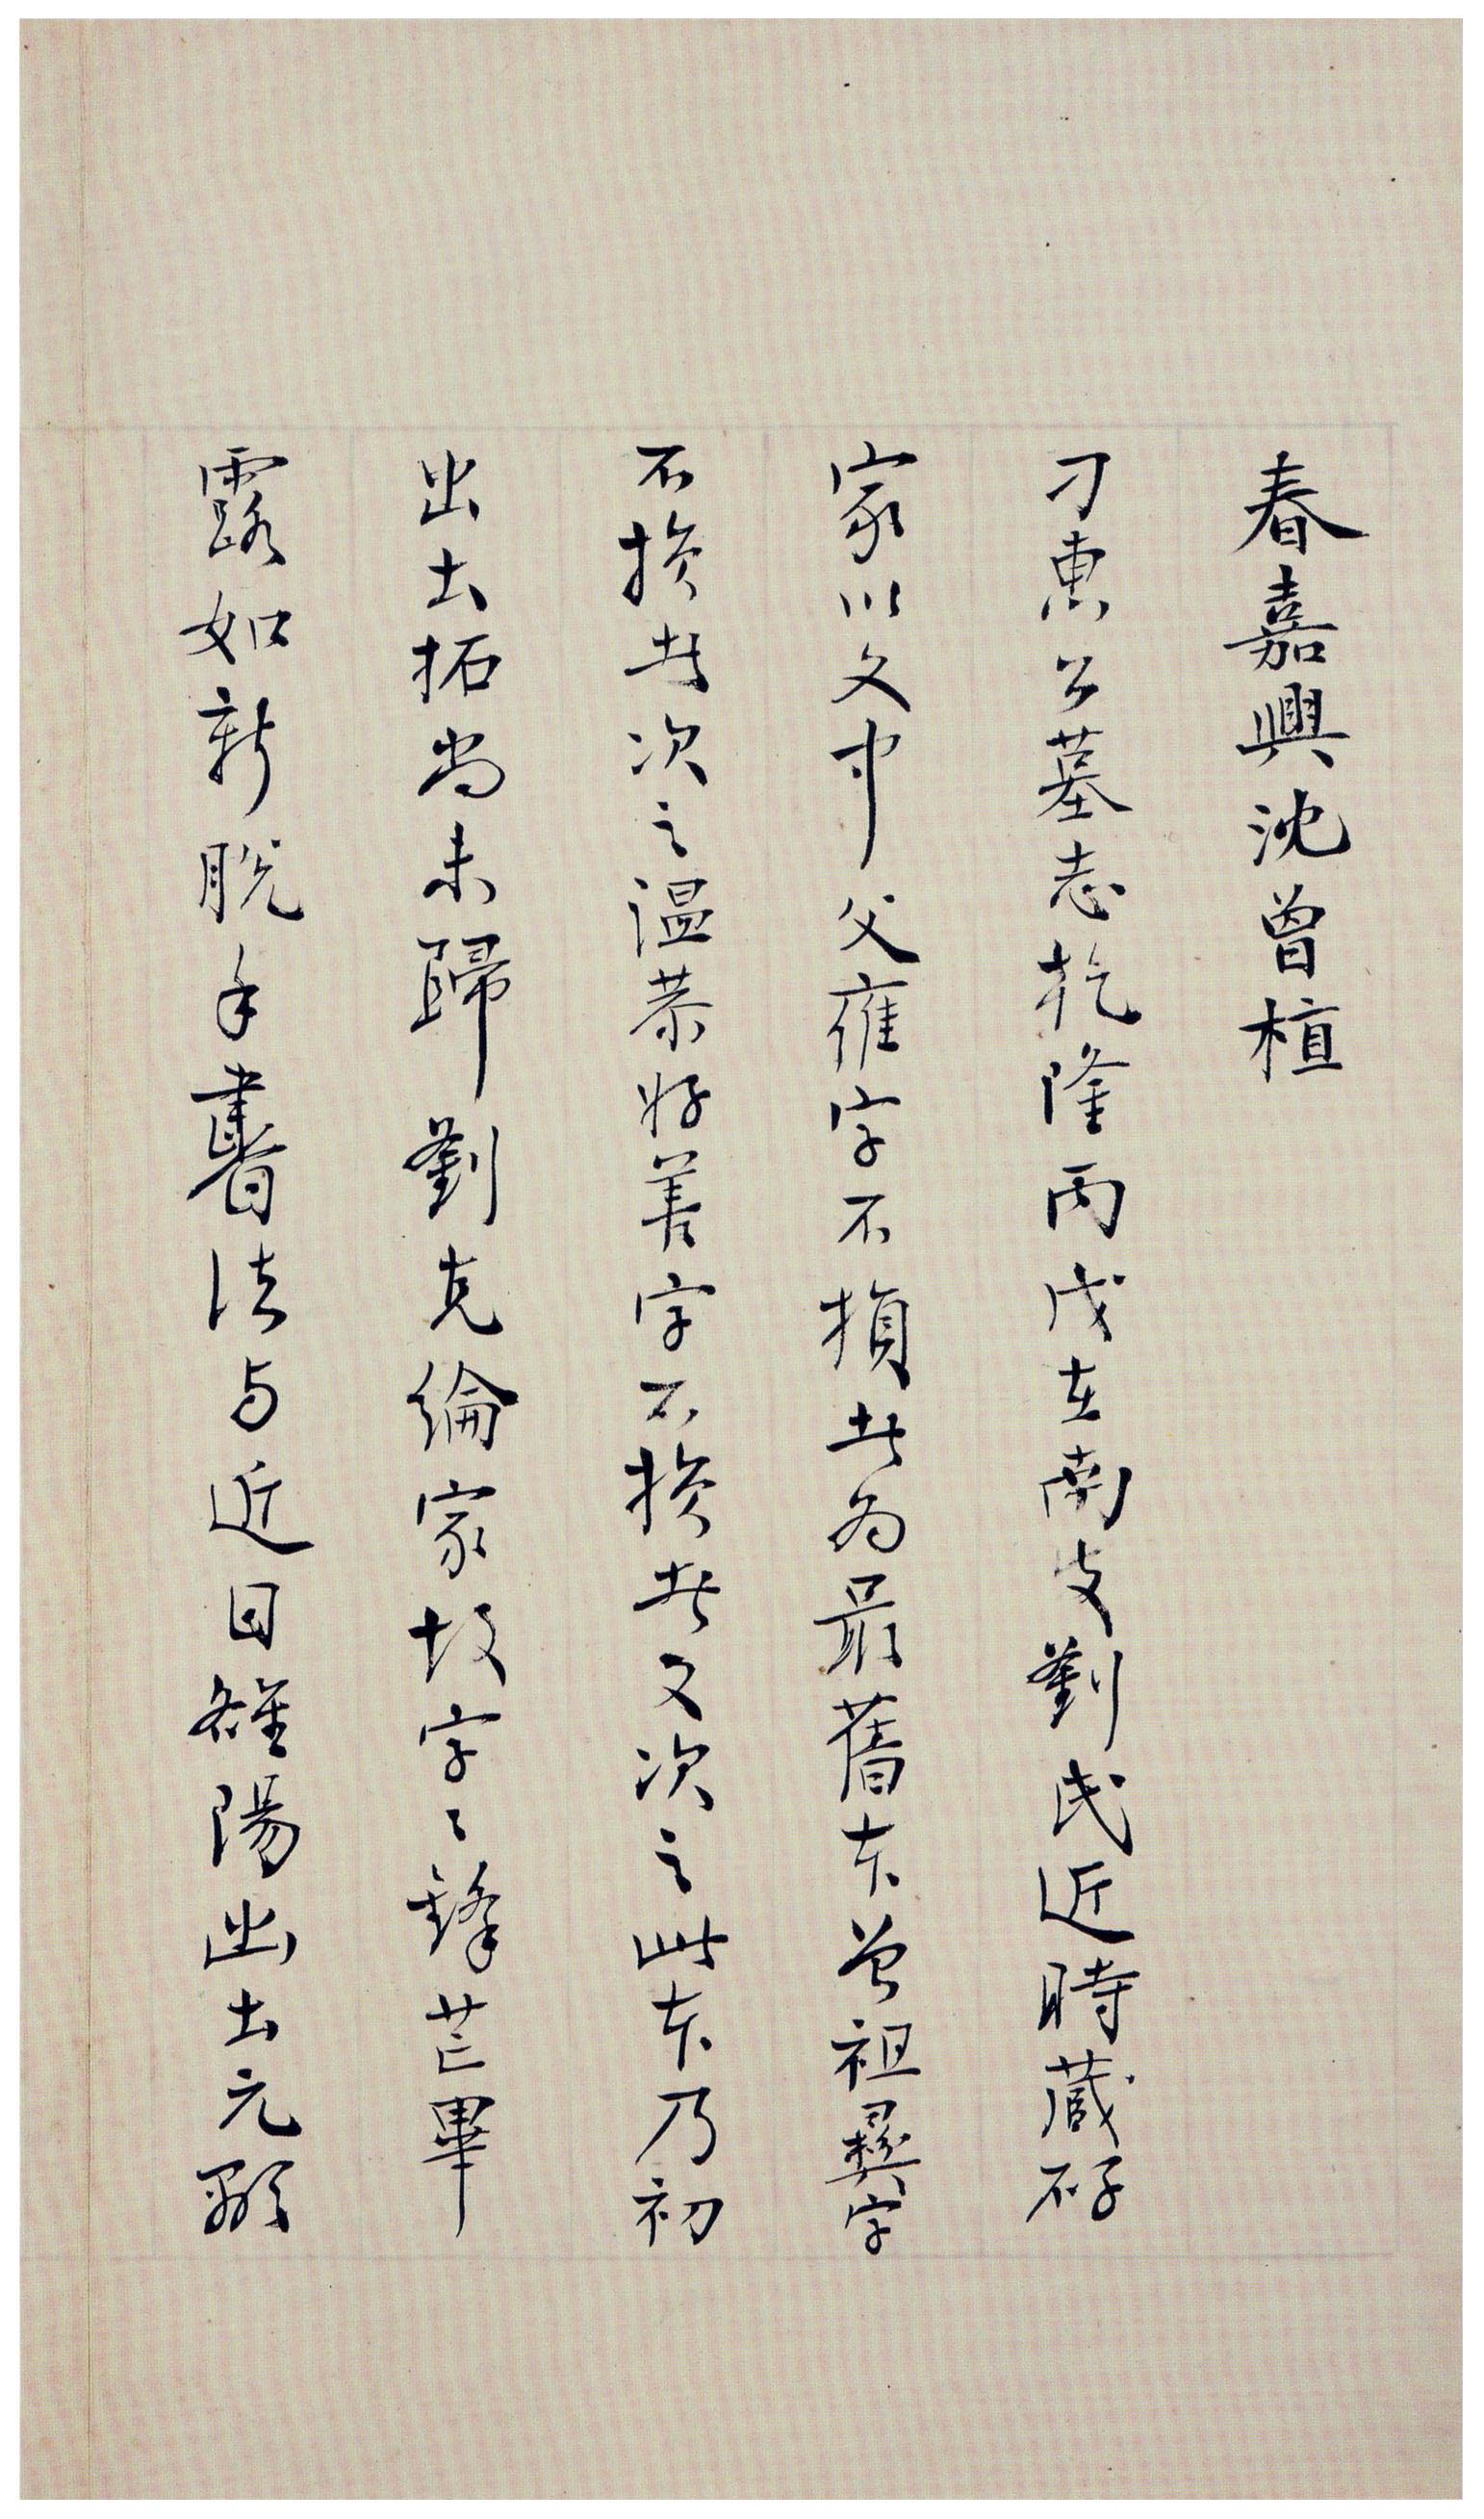 春嘉興沈曾植
刁惠公墓志乾隆丙戌在南皮劉氏近時藏碑
家以文中父雍字不損者為最舊本曾祖彝字
不損者次之溫恭好善字不損者又次之此本乃初
出土拓尚未歸劉克綸家故字字鋒芒畢
露如新脫手書法与近日雒陽出土元顯